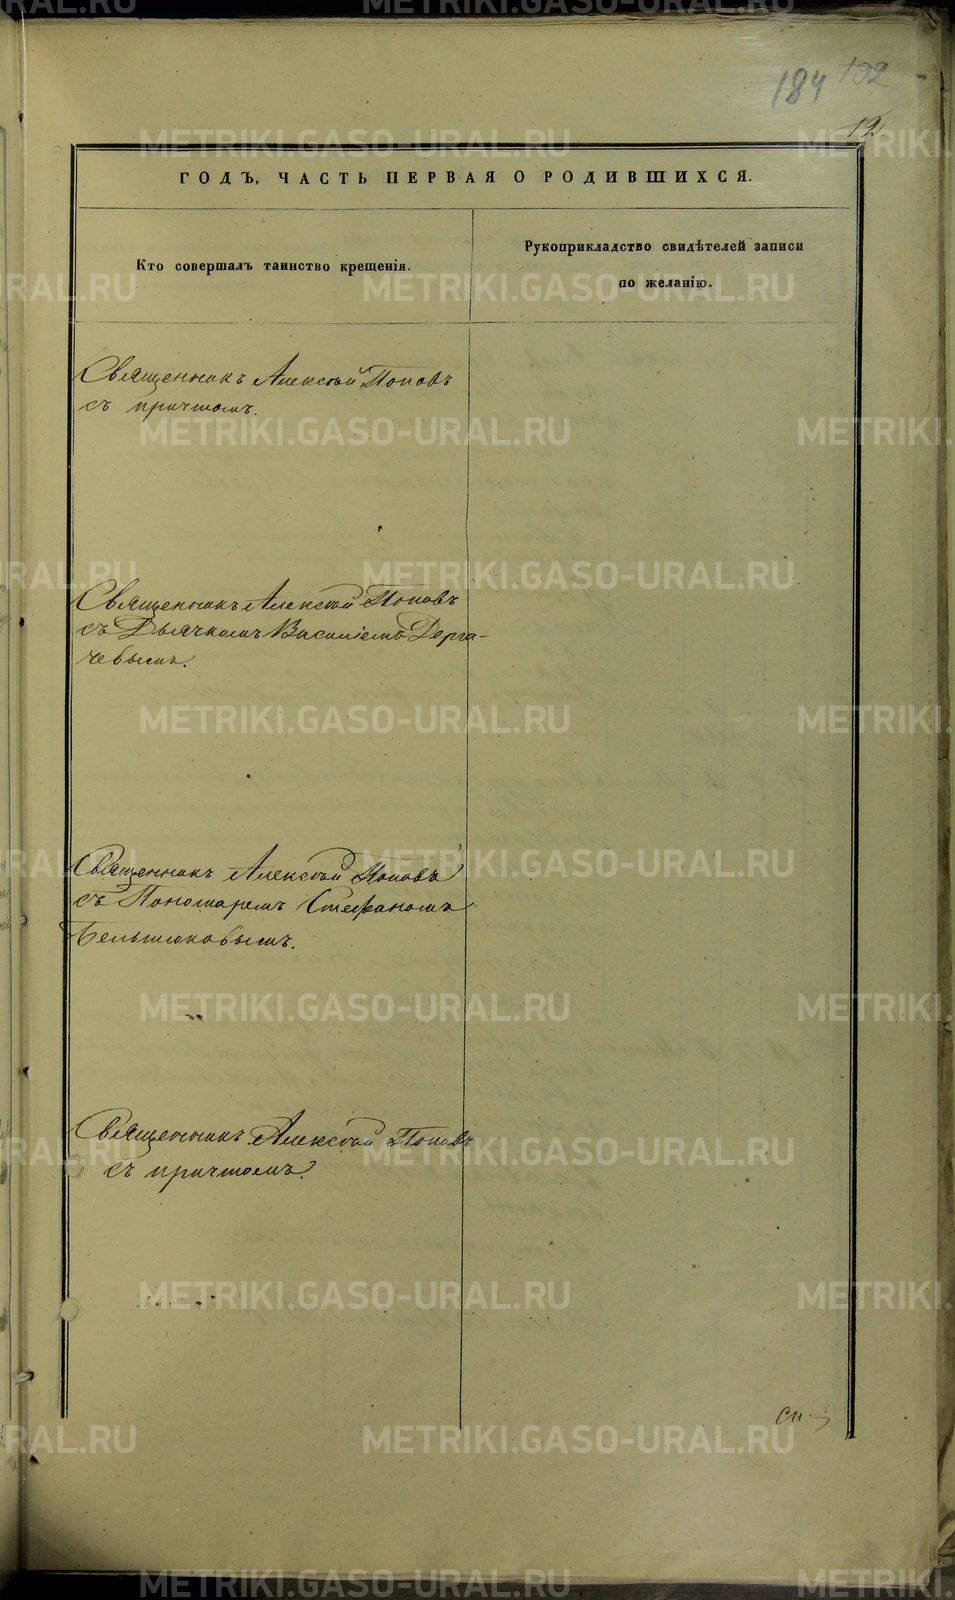 184 192
12.
ГОДЪ, ЧАСТЬ ПЕРВАЯ О РОДИВШИХСЯ.
Кто совершалъ таинство крещенія.
Рукоприкладство свидѣтелей записи
по желанію.
Священникъ Алексѣй Поповъ
съ причтомъ.
Священникъ Алексѣй Поповъ
съ Дьячкомъ Василіемъ Дерга-
чевымъ.
Священникъ Алексѣй Поповъ
съ Пономаремъ Стефаномъ
Бельтюковымъ.
Священникъ Алексѣй Поповъ
съ причтомъ.
METRIKI.GASO-URAL.RU